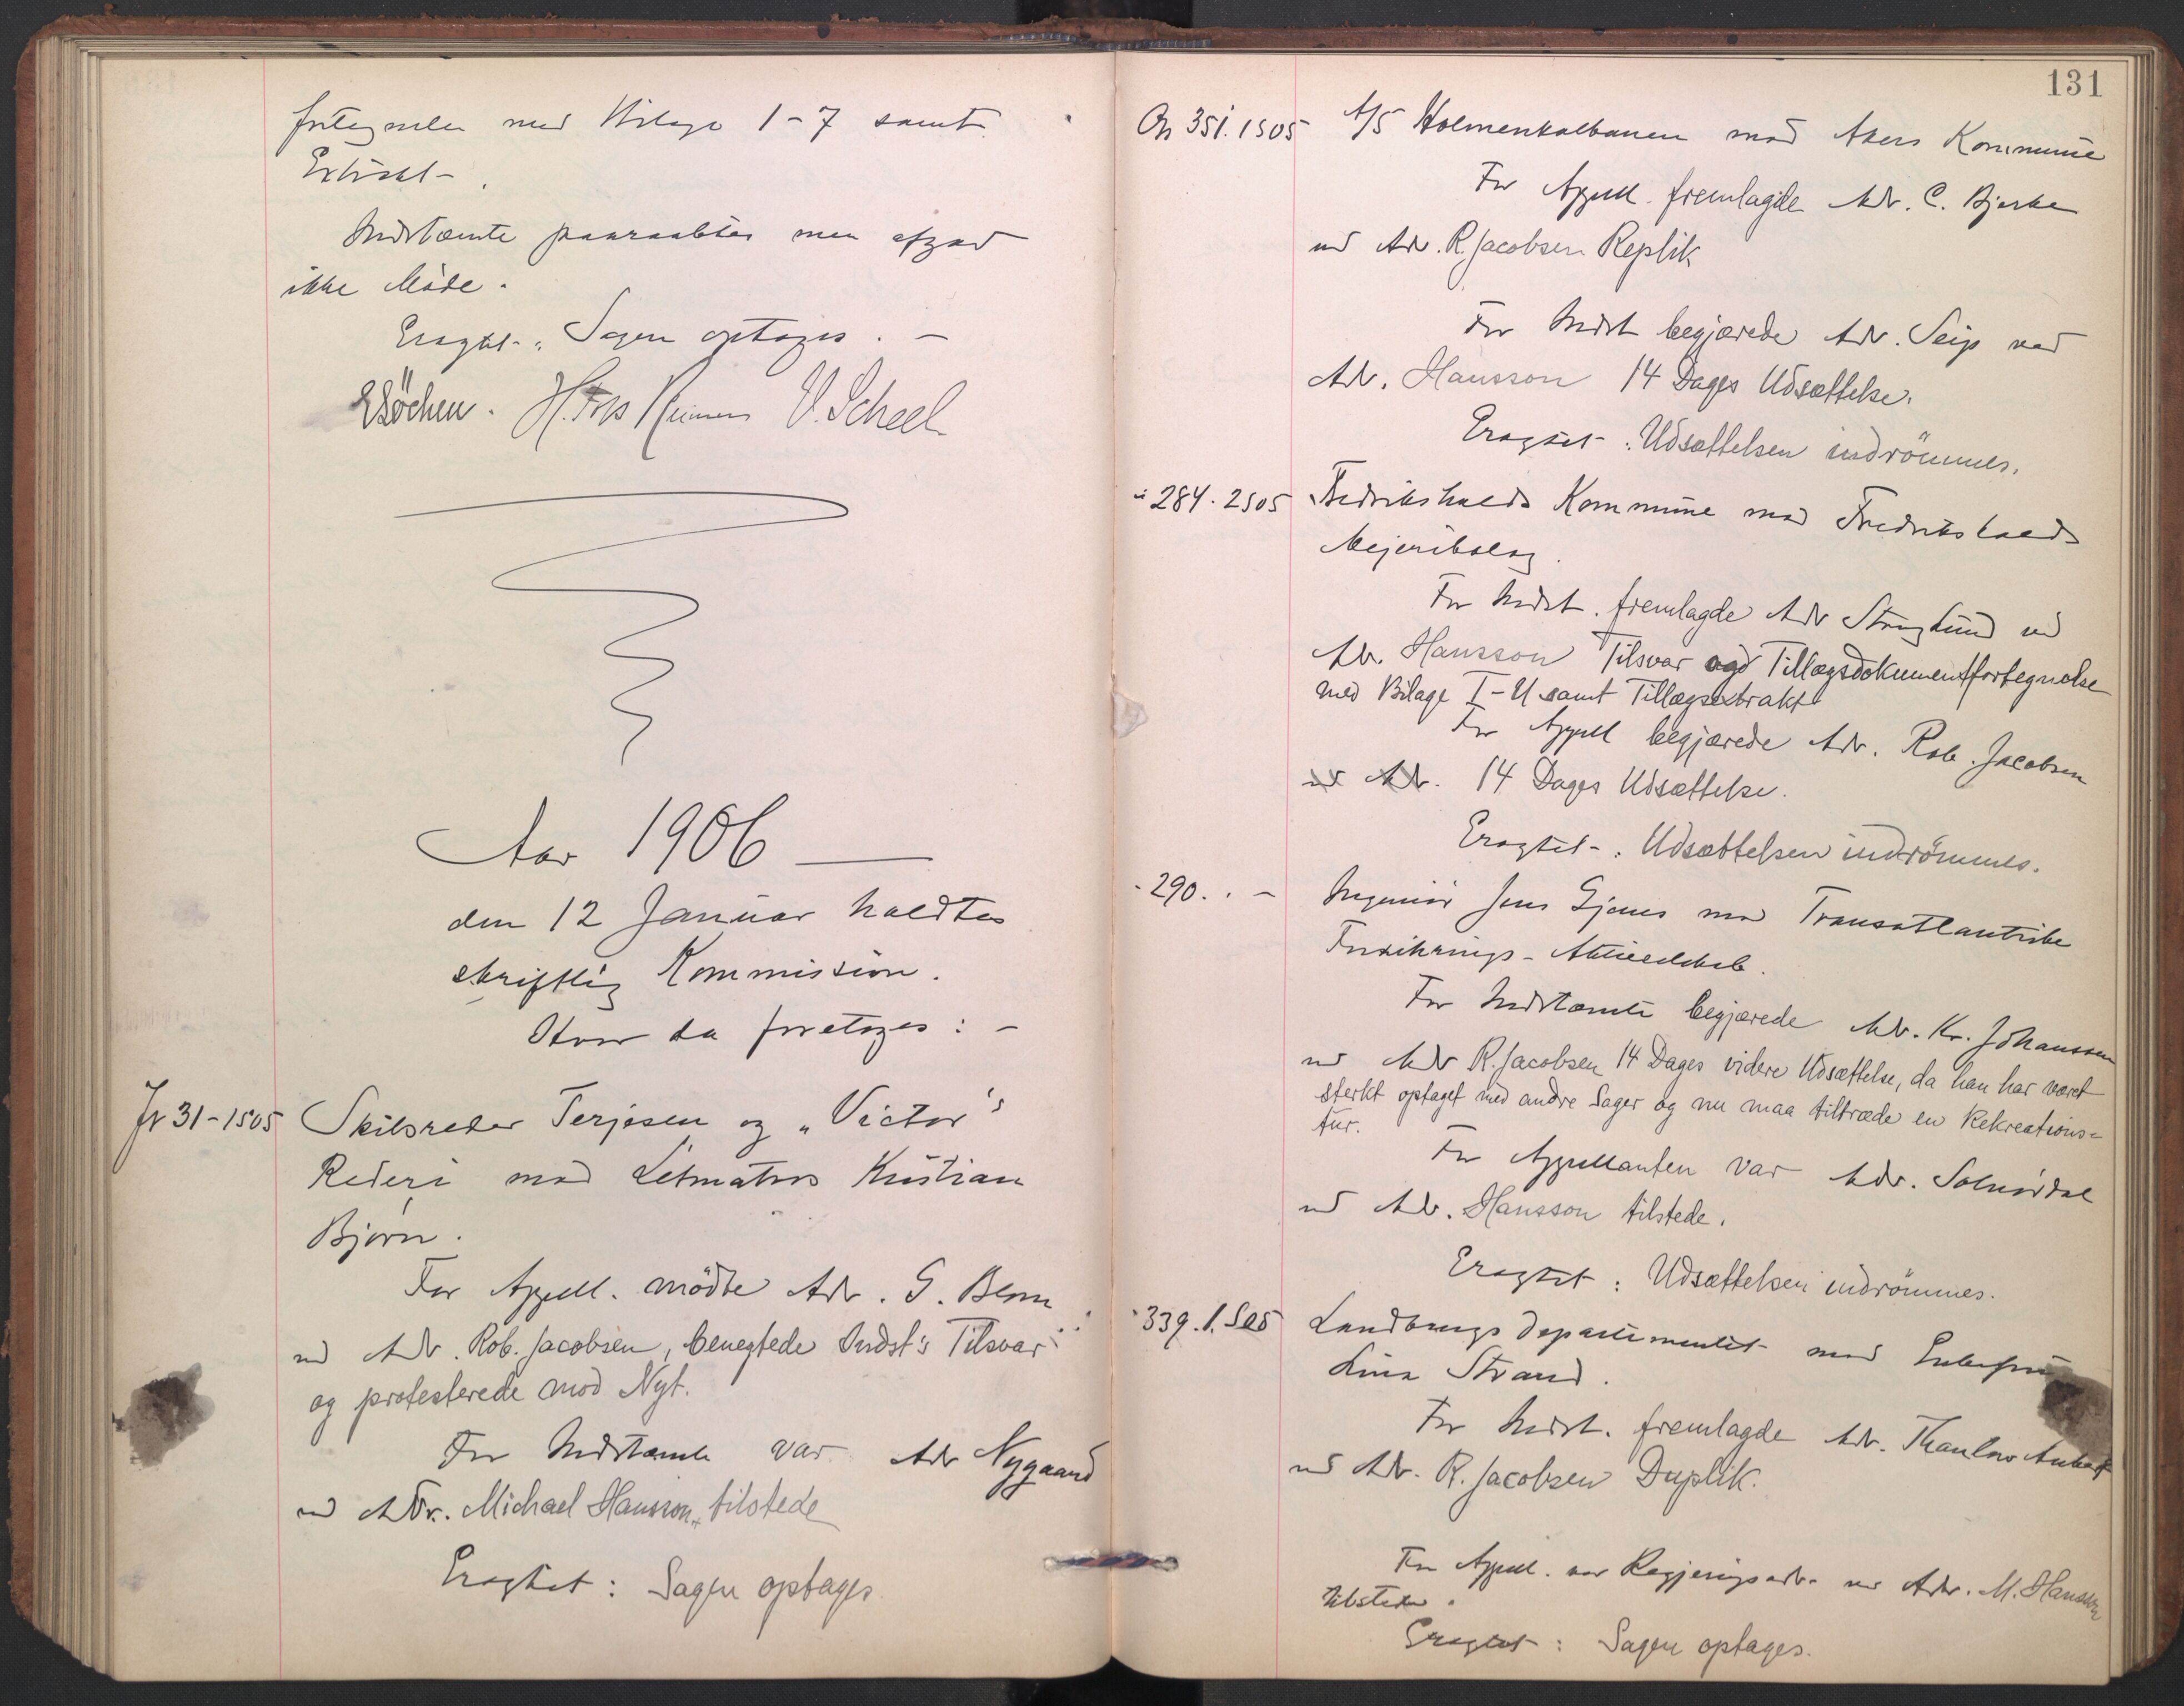 med Bilage 1-7 samt
Extrakt.
Indstævnte paaraabtes men afgav
ikke Møde.
Eragtet: Sagen optages. -
V. Scheel
Aar 1906 -
den 12 Januar holdtes
skriftlig Kommission.
Hvor da foretoges: -
31-1505 Skibsreder Terjesen og "Victor"s
Rederi mod Letmatros Kristian
Bjørn.
For Appell. mödte Adv. G. Blom
ved Adv. Rob. Jacobsen, benegtede Indst's Tilsvar
og protesterede mod Nyt.
For Indstævnte var Adv Nygaard
ved Adv. Michael Hansson tilstede
Eragtet: Sagen optages.
131
351.1505 A/S Holmenkolbanen mod Akers Kommune
For Appell. fremlagde Adv. C. Bjerke
ved Adv. R. Jacobsen Replik
For Indst begjærede Adv. Seip ved
Adv. Hansson 14 Dages Udsættelse.
Eragtet: Udsættelsen indrömmes.
" 284. 2505 Fredrikshalds Kommune mod Fredrikshalds
Mejeribolag.
For Indst. fremlagde Adv ved
Adv. Hansson Tilsvar og Tillægsdokumentfortegnelse
med Bilage I-U samt Tillægsextrakt
For Appell begjærede Adv. Rob. Jacobsen
ved Adv. 14 Dages Udsættelse.
Eragtet: Udsættelsen indrömmes.
- 290. . - Ingeniør Jens mod Transatlantiske
Forsikrings-Aktieselskab.
For Indstævnte begjærede Adv. Kr. Johanssen
ved Adv R. Jacobsen 14 Dages videre Udsættelse, da han har været
sterkt optaget med andre Sager og nu maa tiltræde en Rekreations-
tur.
For Appellanten var Adv. Solnørdal
ved Adv. Hansson tilstede.
Eragtet: Udsættelsen indrömmes.
" 339. 1. 505 Landbrugsdepartementet mod
Lina Strand.
For Indst. fremlagde Adv. Thaulow Aubert
ved Adv. R. Jacobsen Duplik.
For Appell. var Regjeringsadv. ved Adv. M. Hansson
tilstede.
Eragtet: Sagen optages.